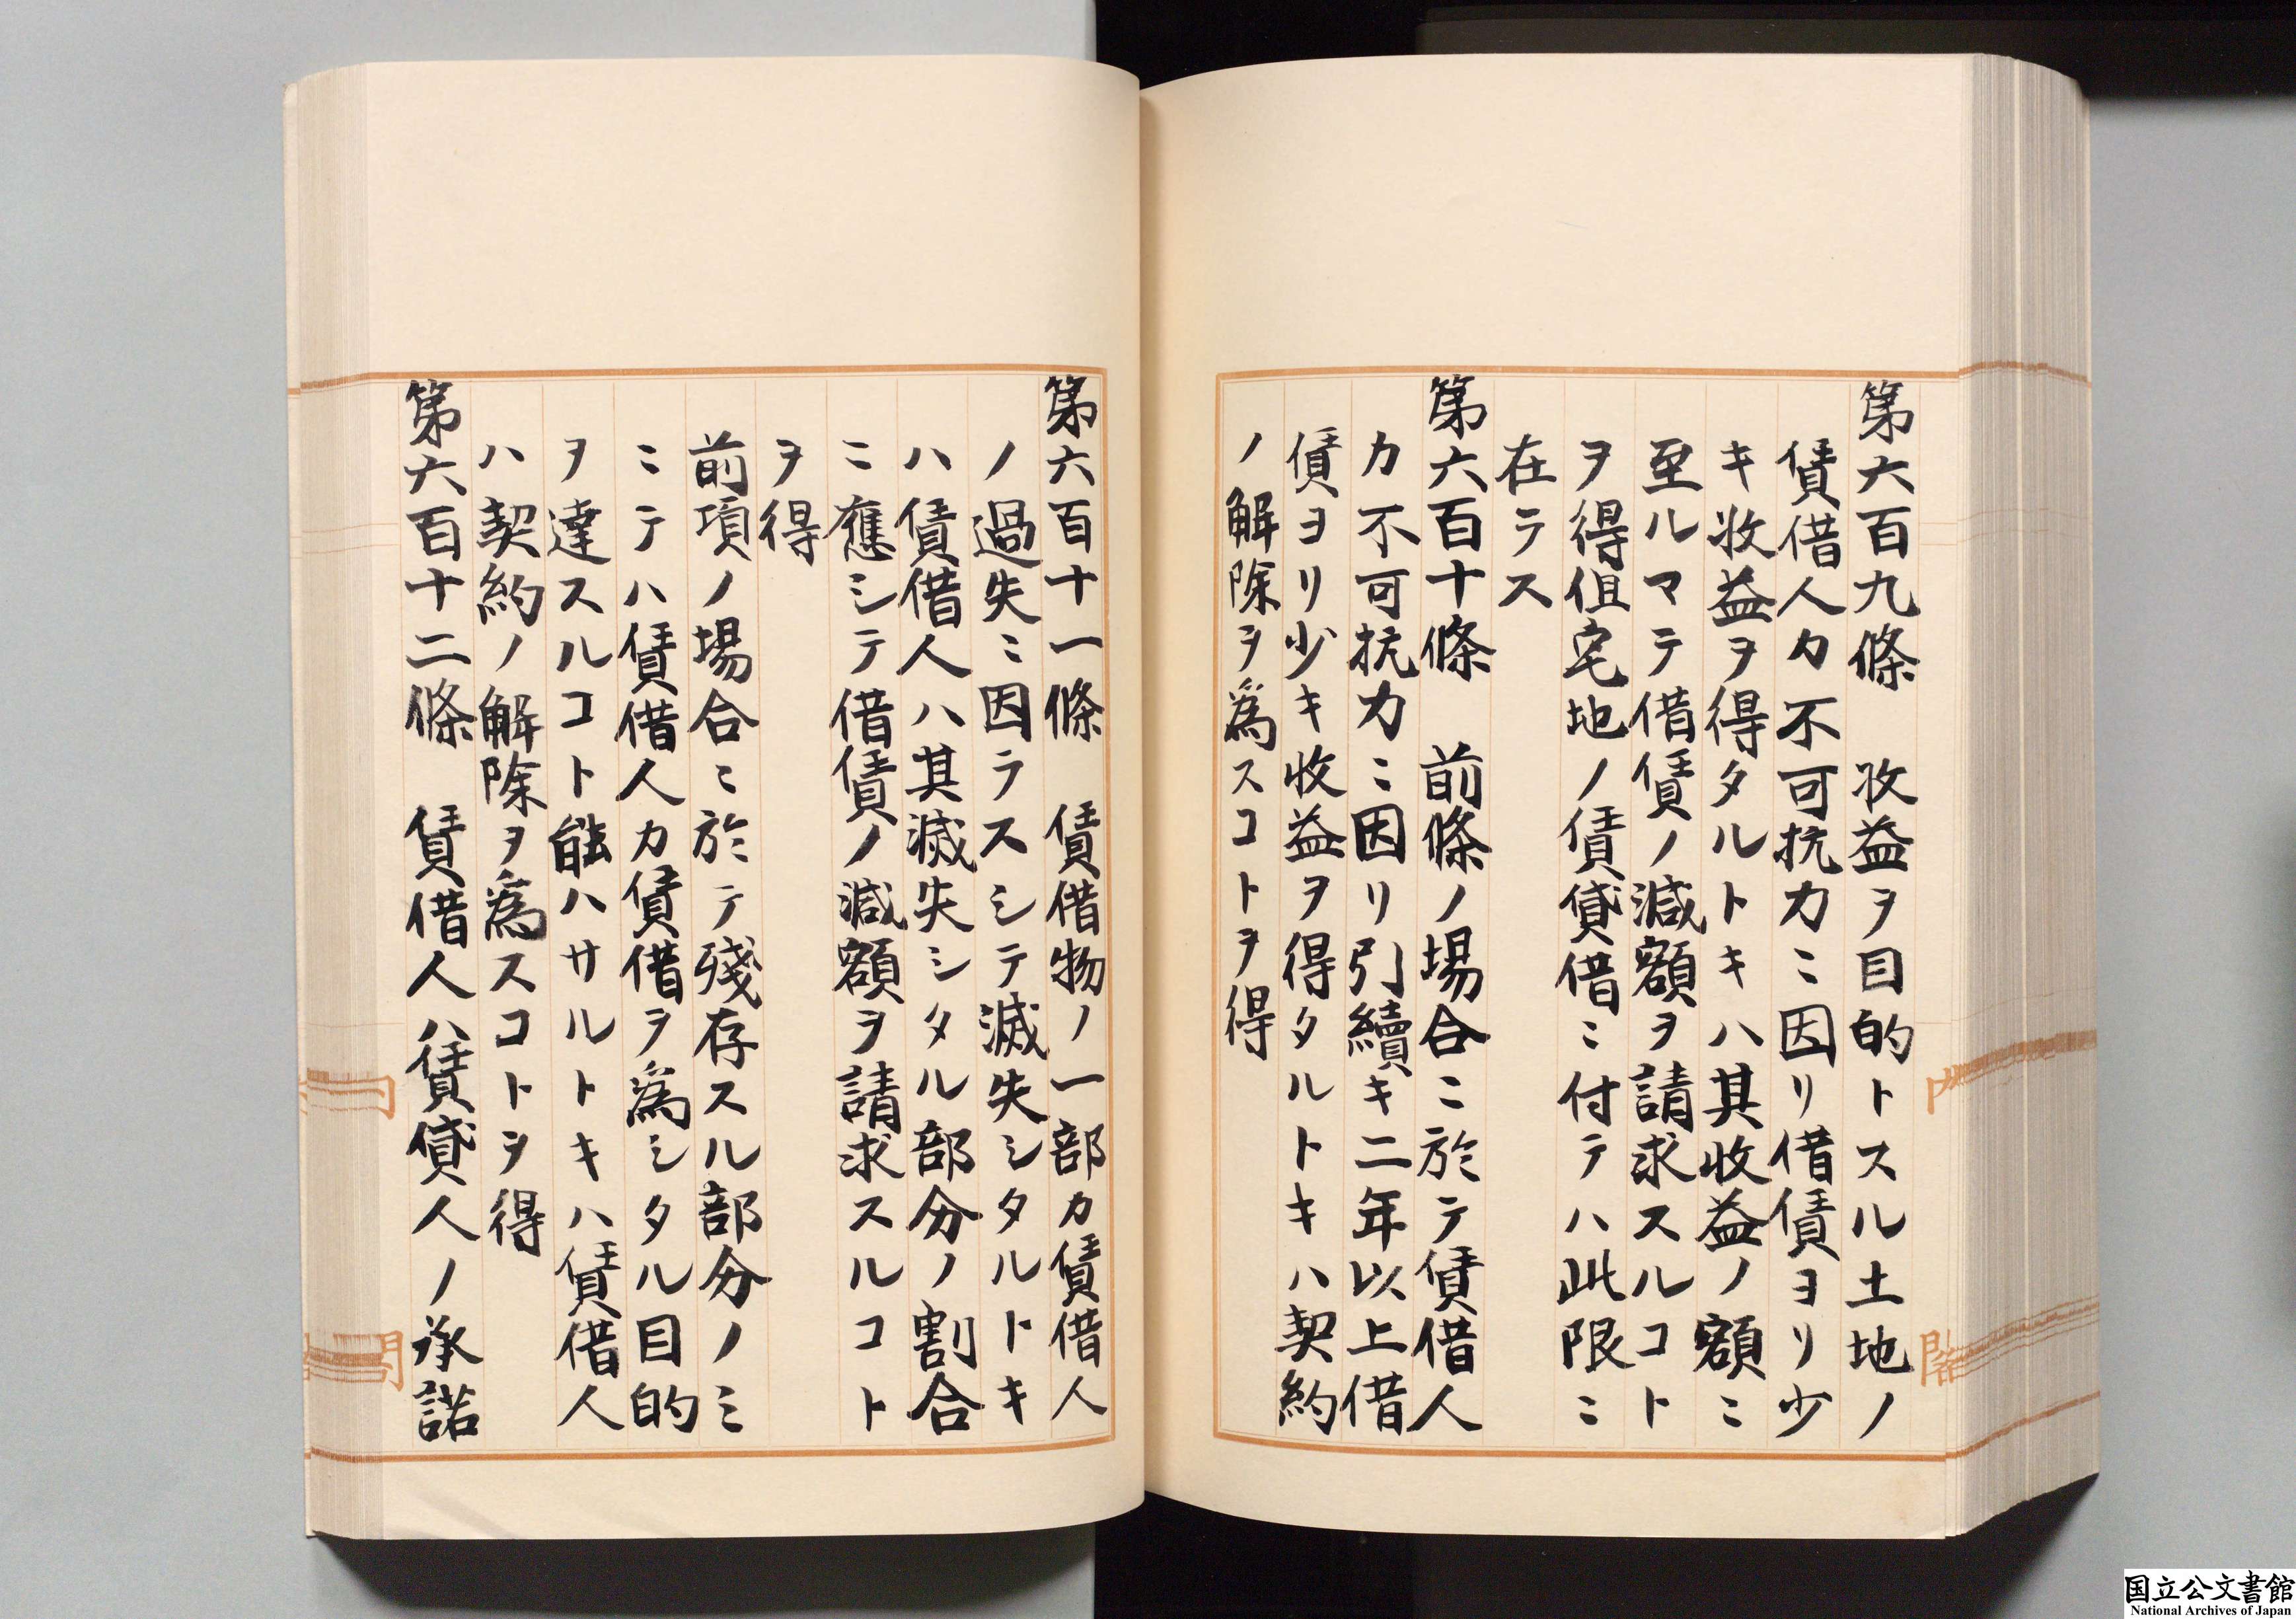 第六百九條　收益ヲ目的トスル土地ノ
賃借人カ不可抗力ニ因リ借賃ヨリ少
キ收益ヲ得タルトキハ其收益ノ額ニ
至ルマテ借賃ノ減額ヲ請求スルコト
ヲ得但宅地ノ賃貸借ニ付テハ此限ニ
在ラス
第六百十條　前條ノ場合ニ於テ賃借人
カ不可抗力ニ因リ引續キ二年以上借
賃ヨリ少キ收益ヲ得タルトキハ契約
ノ解除ヲ爲スコトヲ得
第六百十一條　賃借物ノ一部カ賃借人
ノ過失ニ因ラスシテ滅失シタルトキ
ハ賃借人ハ其滅失シタル部分ノ割合
ニ應シテ借賃ノ減額ヲ請求スルコト
ヲ得
前項ノ場合ニ於テ殘存スル部分ノミ
ニテハ賃借人カ賃借ヲ爲シタル目的
ヲ達スルコト能ハサルトキハ賃借人
ハ契約ノ解除ヲ爲スコトヲ得
第六百十二條　賃借人ハ賃貸人ノ承諾
内
閣
国立公文書館
National Archives of Japan